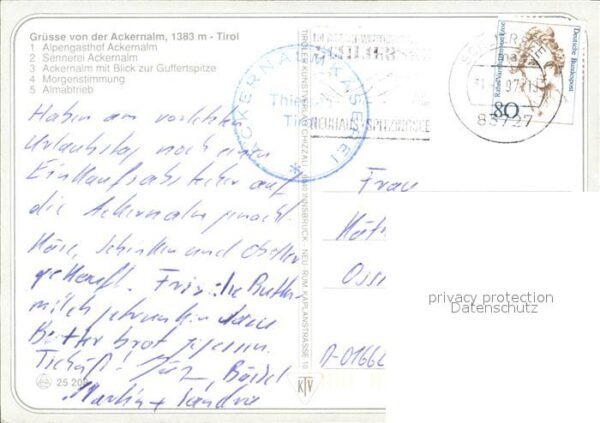 Grüsse von der Ackernalm, 1383 m - Tirol
1 Alpengasthof Ackernalm
2 Sennerei Ackernalm
3 Ackernalm mit Blick zur Guffertspitze
4 Morgenstimmung
5 Almabtrieb
Haben am vorletzten
Urlaubstag noch einen
Einkaufsabstecher auf
die Ackernalm gemacht.
Käse, Schinken und
gekauft. Frische Butter-
milch getrunken dann
Butterbrot gegessen.
Tschüß!
Martin + Sandra
25 209
TIROLER KUNSTVERLAG CHIZZALI 6040 INNSBRUCK - NEU RUM KAPLANSTRASSE 10
KTV
ACKERNALM KÄSEREI
Thiersee
SCHLIERSEE
NEUHAUS · SPITZINGSEE
83727
Deutsche Bundespost
80
Frau
D-0166
privacy protection
Datenschutz